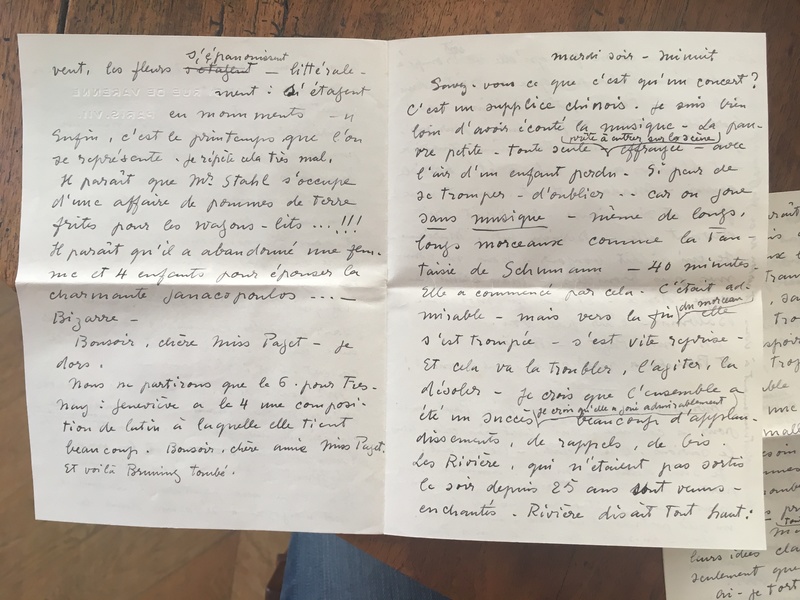 s'épanouissent
vent, les fleurs s'étagent — littérale-
ment : s'étagent
RUE DE VARENNE
PARIS. VII
en monuments —
Enfin, c'est le printemps que l'on
se représente. Je répète cela très mal.
Il paraît que Mr Stahl s'occupe
d'une affaire de pommes de terre
frites pour les wagons-lits ...!!!
Il paraît qu'il a abandonné une fem-
me et 4 enfants pour épouser la
charmante Janacopoulos ... —
Bizarre —
Bonsoir, chère Miss Paget — je
dors.
Nous ne partirons que le 6 pour Tres-
nay : Geneviève a le 4 une composi-
tion de latin à laquelle elle tient
beaucoup. Bonsoir, chère amie Miss Paget.
Et voilà Bruning tombé.
mardi soir — minuit
Savez-vous ce que c'est qu'un concert ?
C'est un supplice chinois. Je suis bien
loin d'avoir écouté la musique — La pau-
(prête à entrer sur la scène)
vre petite — toute seule — effrayée — avec
l'air d'un enfant perdu. Si peur de
se tromper — d'oublier .. car on joue
sans musique — même de longs,
longs morceaux comme la Fan-
taisie de Schumann — 40 minutes.
Elle a commencé par cela. C'était ad-
mirable — mais vers la fin du morceau elle
s'est trompée — s'est vite reprise —
Et cela va la troubler, l'agiter, la
désoler — Je crois que l'ensemble a
je crois qu'elle a joué admirablement
été un succès beaucoup d'applau-
dissements, de rappels, de bis.
Les Rivière, qui n'étaient pas sortis
le soir depuis 25 ans sont venus —
enchantés. Rivière disait tout haut :
leurs idées
seulement que
ai-je tort